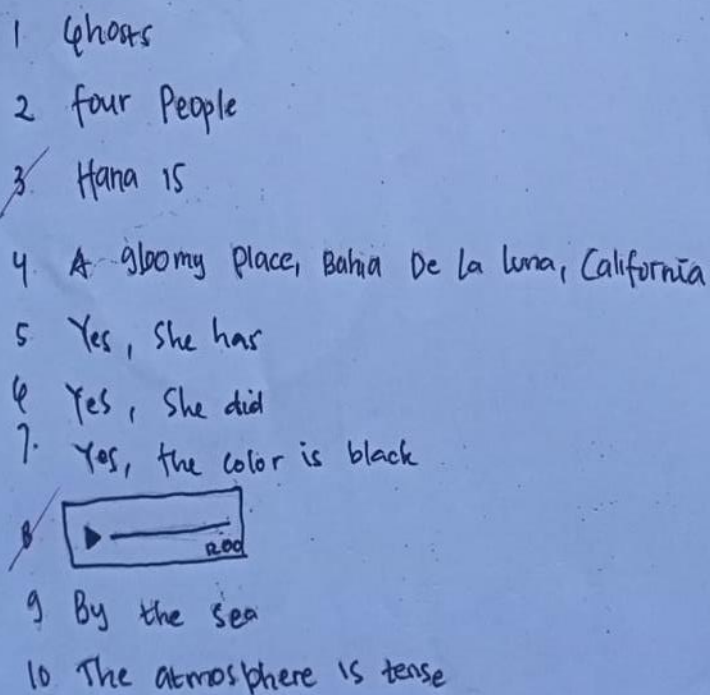 1 Ghosts
2 four People
3. Hana is
4. A gloomy place, Bahia De La luna, California
5 Yes, She has
6 Yes, She did
7. Yes, the color is black
8
9 By the sea
10 The atmosphere is tense